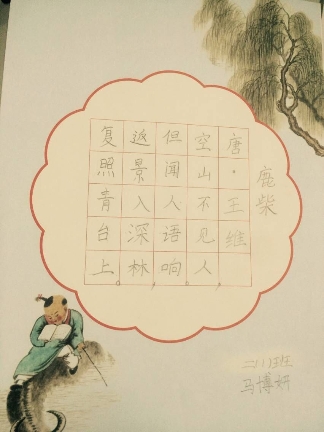 鹿柴
唐·王维
空山不见人，
但闻人语响。
返景入深林，
复照青台上。
马博妍